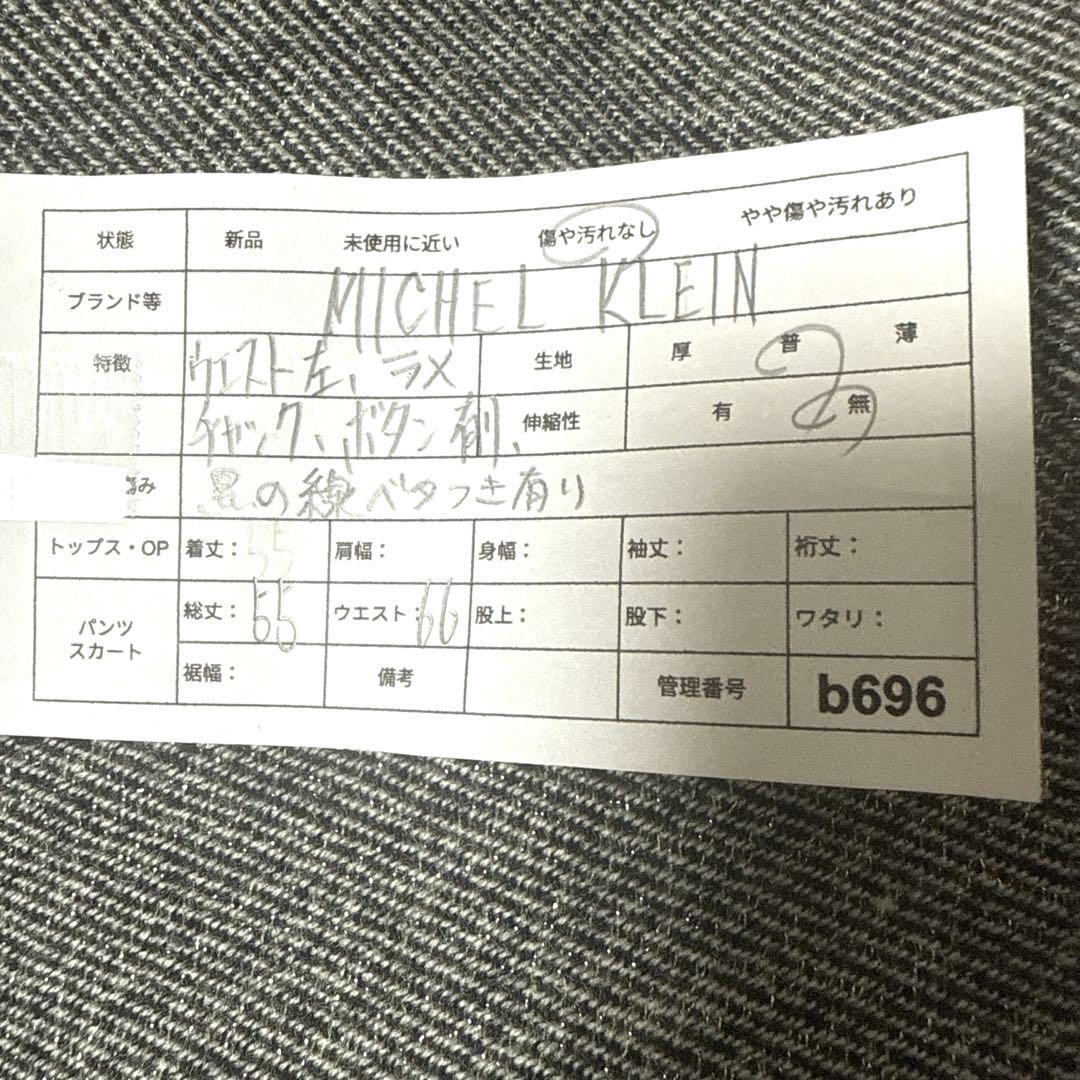 状態 新品 未使用に近い 傷や汚れなし やや傷や汚れあり
ブランド等 MICHEL KLEIN
特徴 ウエスト左、ラメ 生地 厚 普 薄
チャック、ボタン有り、 伸縮性 有 無
み の線ベタつき有り
トップス・OP 着丈: 55 肩幅: 身幅: 袖丈: 裄丈:
パンツ スカート 総丈: 55 ウエスト: 66 股上: 股下: ワタリ:
裾幅: 備考 管理番号 b696